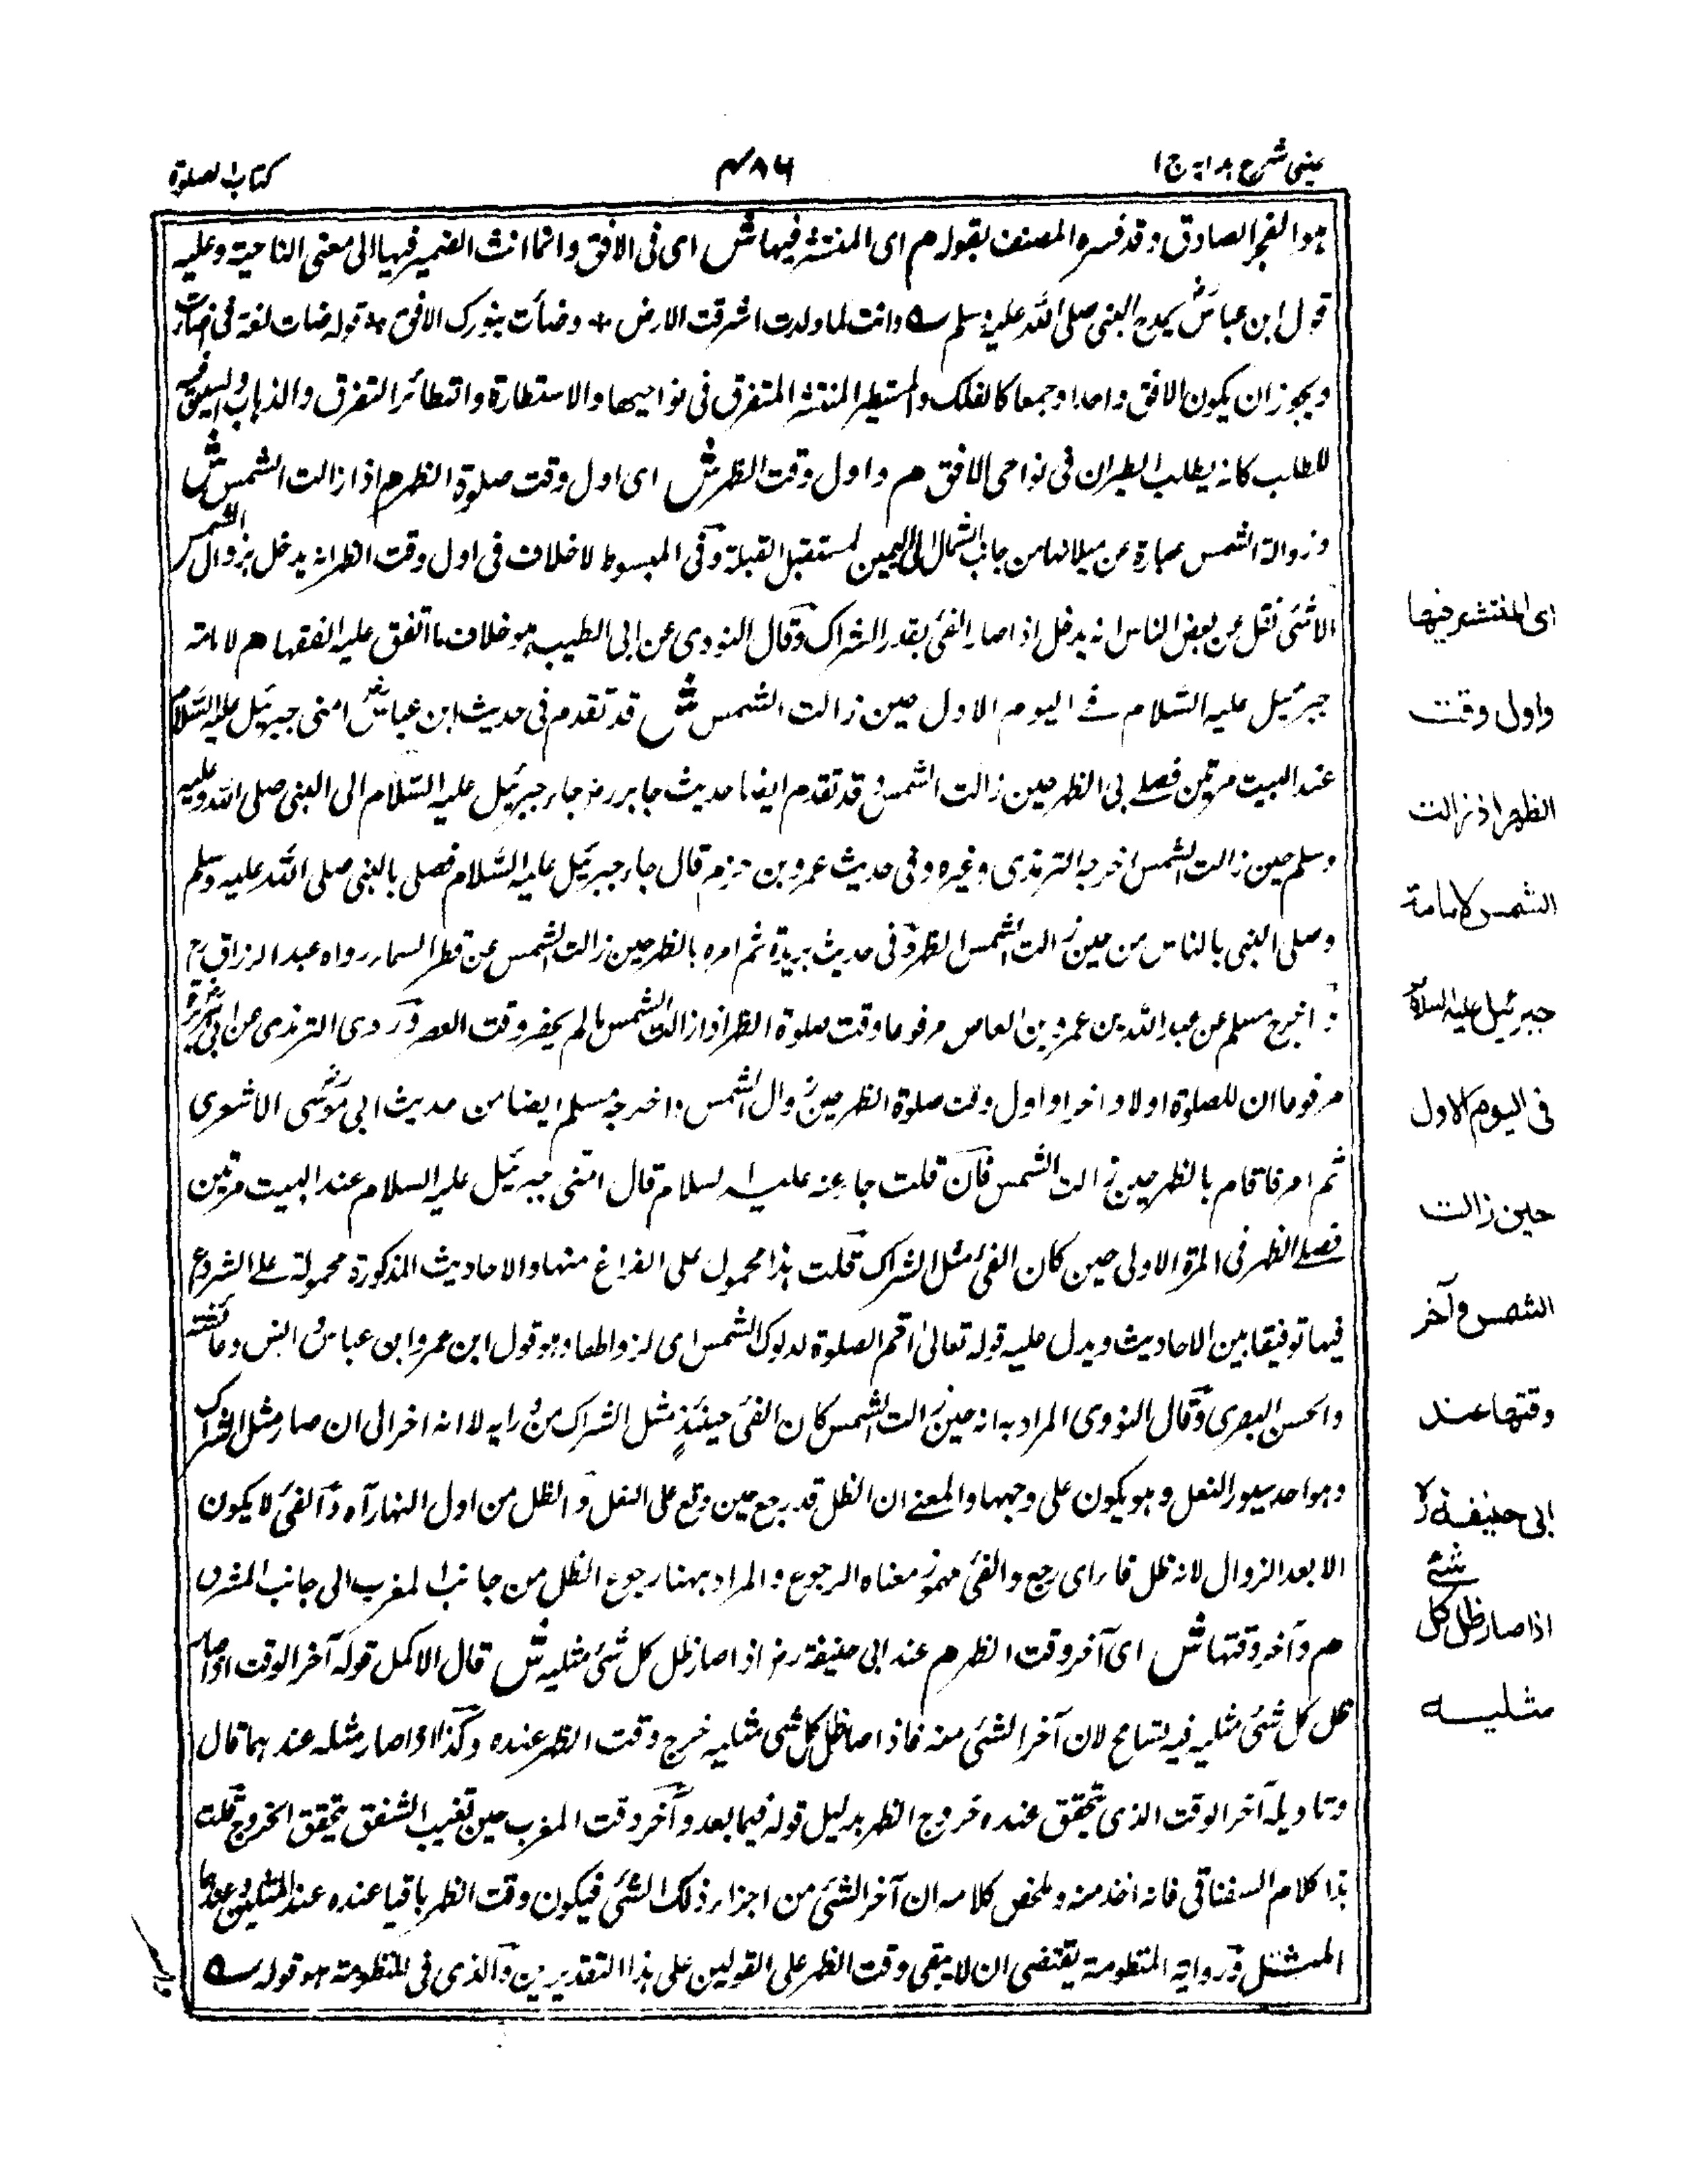 عینی شرح ہدایہ ج ا
۴۸۶
کتاب الصلوۃ
ہو الفجر الصادق وقد فسرہ المصنف بقولہ م ای المنتشر فیہا ش ای فی الافق وانما انث الضمیر فیہا الی معنی الناحیۃ وعلیہ
قول ابن عباسؓ یمدح النبی صلی اللہ علیہ وسلم وانت لما ولدت اشرقت الارض + وضأت بنورک الافق + قولہ ضات لغۃ فی اضاءت
ویجوز ان یکون الافق واحدا وجمعا کالفلک والمستطیر المنتشر المتفرق فی نواحیہا والاستطارۃ والتطائر التفرق والذہاب والسین فیہ
للطلب کانہ یطلب الطیران فی نواحی الافق م واول وقت الظہر ش ای اول وقت صلوۃ الظہر م اذا زالت الشمس ش
وزوالۃ الشمس عبارۃ عن میلانہا من جانب الشمال الی الیمین لمستقبل القبلۃ وفی المبسوط لا خلاف فی اول وقت الظہر انہ یدخل بزوال الشمس
الا شئی نقل عن بعض الناس انہ یدخل اذا صار الفئ بقدر الشراک وقال النودی عن ابی الطیب ہو خلاف ما اتفق علیہ الفقہا م لامامۃ
جبرئیل علیہ السلام فے الیوم الاول حین زالت الشمس ش قد تقدم فی حدیث ابن عباسؓ امنی جبرئیل علیہ السلام
عند البیت مرتین فصلے بی الظہر حین زالت الشمس وقد تقدم ایضا حدیث جابر رضہ جاء جبرئیل علیہ السلام الی النبی صلی اللہ علیہ
وسلم حین زالت الشمس اخرجہ الترمذی وغیرہ وفی حدیث عمرو بن حزم قال جاء جبرئیل علیہ السلام فصلی بالنبی صلی اللہ علیہ وسلم
وصلی النبی بالناس من حین زالت الشمس الظہر وفی حدیث بریدۃ ثم امرہ بالظہر حین زالت الشمس عن قطر السماء رواہ عبد الرزاق
واخرج مسلم عن عبد اللہ بن عمرو بن العاص مرفوعا وقت صلوۃ الظہر اذا زالت الشمس مالم یحضر وقت العصر وروی الترمذی عن ابی ہریرۃ
مرفوعا ان للصلوۃ اولا واخرا واول وقت صلوۃ الظہر حین زوال الشمس واخرجہ مسلم ایضا من حدیث ابی موسی الاشعری
ثم امر فاقام بالظہر حین زالت الشمس فان قلت جاء عنہ علیہ السلام قال امنی جبرئیل علیہ السلام عند البیت مرتین
فصلے الظہر فی المرۃ الاولی حین کان الفئ مثل الشراک قلت ہذا محمول علی الفراغ منہا والاحادیث المذکورۃ محمولۃ علے الشروع
فیہا توفیقا بین الاحادیث ویدل علیہ قولہ تعالیٰ اقم الصلوۃ لدلوک الشمس ای لزوالہا وہو قول ابن عمر وابن عباس وانس وعائشۃ
والحسن البصری وقال النووی المراد بہ انہ حین زالت الشمس کان الفئ حینئذٍ مثل الشراک من ورایہ لا انہ اخر الی ان صار مثل الشراک
وہو احد سیور النعل وہو یکون علی وجہہا والمعنے ان الظل قد رجع حین وقع علی النعل والظل من اول النہار آہ والفئ لا یکون
الا بعد الزوال لانہ ظل فاء ای رجع والفئ مہموز معناہ الرجوع والمراد ہہنا رجوع الظل من جانب المغرب الی جانب المشرق
م وآخر وقتہا ش ای آخر وقت الظہر م عند ابی حنیفۃ رضہ اذا صار ظل کل شئ مثلیہ ش قال الاکمل قولہ آخر الوقت اذا صار
ظل کل شئ مثلیہ فیہ تسامح لان آخر الشئ منہ فاذا صار ظل کل شئ مثلیہ خرج وقت الظہر عندہ وکذا اذا صار مثلہ عندہما قال
وتاویلہ آخر الوقت الذی یتحقق عندہ خروج الظہر بدلیل قولہ فیما بعد وآخر وقت المغرب حین تغیب الشفق یتحقق الخروج قلت
ہذا کلام السغناقی فانہ اخذ منہ وملخص کلامہ ان آخر الشئ من اجزاء ذلک الشئ فیکون وقت الظہر باقیا عندہ عند المثلین وعندہما
المثل وروایۃ المنظومۃ یقتضی ان لا یبقی وقت الظہر علی القولین علی ہذا التقدیرین والذی فی المنظومۃ ہو قولہ
ای المنتشر فیها
واول وقت
الظهر اذ زالت
الشمس لامامة
جبرئیل علیه السلام
فی الیوم الاول
حین زالت
الشمس وآخر
وقتها عند
ابی حنیفة
اذا صار ظل کل شئ
مثلیه